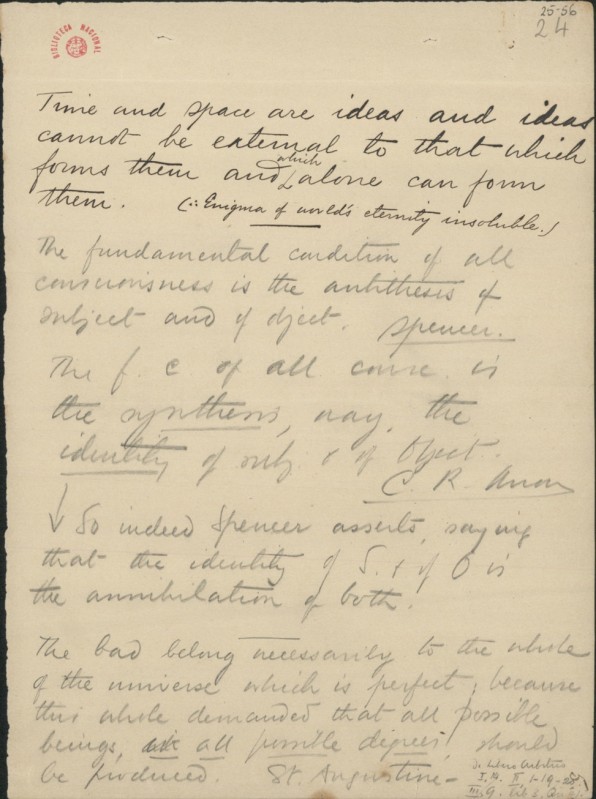 25-56
24
BIBLIOTECA NACIONAL
Time and space are ideas and ideas
cannot be external to that which
forms them and which alone can form
them. (∴ Enigma of world's eternity insoluble.)
The fundamental condition of all
consciousness is the antithesis of
subject and of object. Spencer.
The f. c. of all consc. is
the synthesis, nay, the
identity of subj. & of Object.
C. R. Anon
So indeed Spencer asserts, saying
that the identity of S. & of O is
the annihilation of both.
The bad belong necessarily to the whole
of the universe which is perfect; because
this whole demanded that all possible
beings, with all possible degrees, should
be produced. St. Augustine —